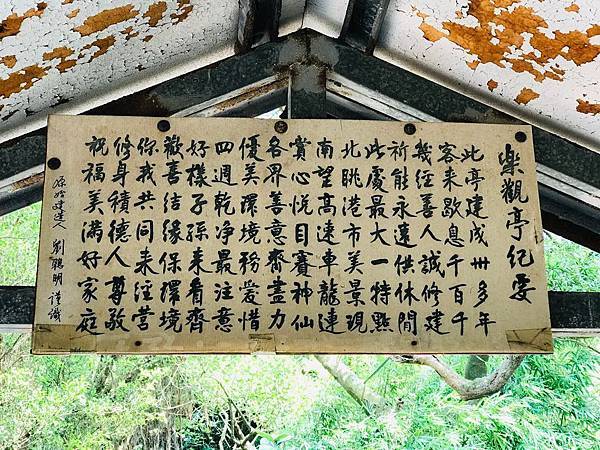 樂觀亭紀要
此亭建成卅多年
客來歇息千百千
幾經善人誠修建
祈能永遠供休閒
此處最大一特點
北眺港市美景現
南望高速車龍連
賞心悅目賽神仙
各界善意齊盡力
優美環境務愛惜
四週乾净最注意
好樣子孫來看齊
歡喜結緣保環境
你我共同來經營
修身積德人尊敬
祝福美滿好家庭
原始建造人 劉聰明 謹識